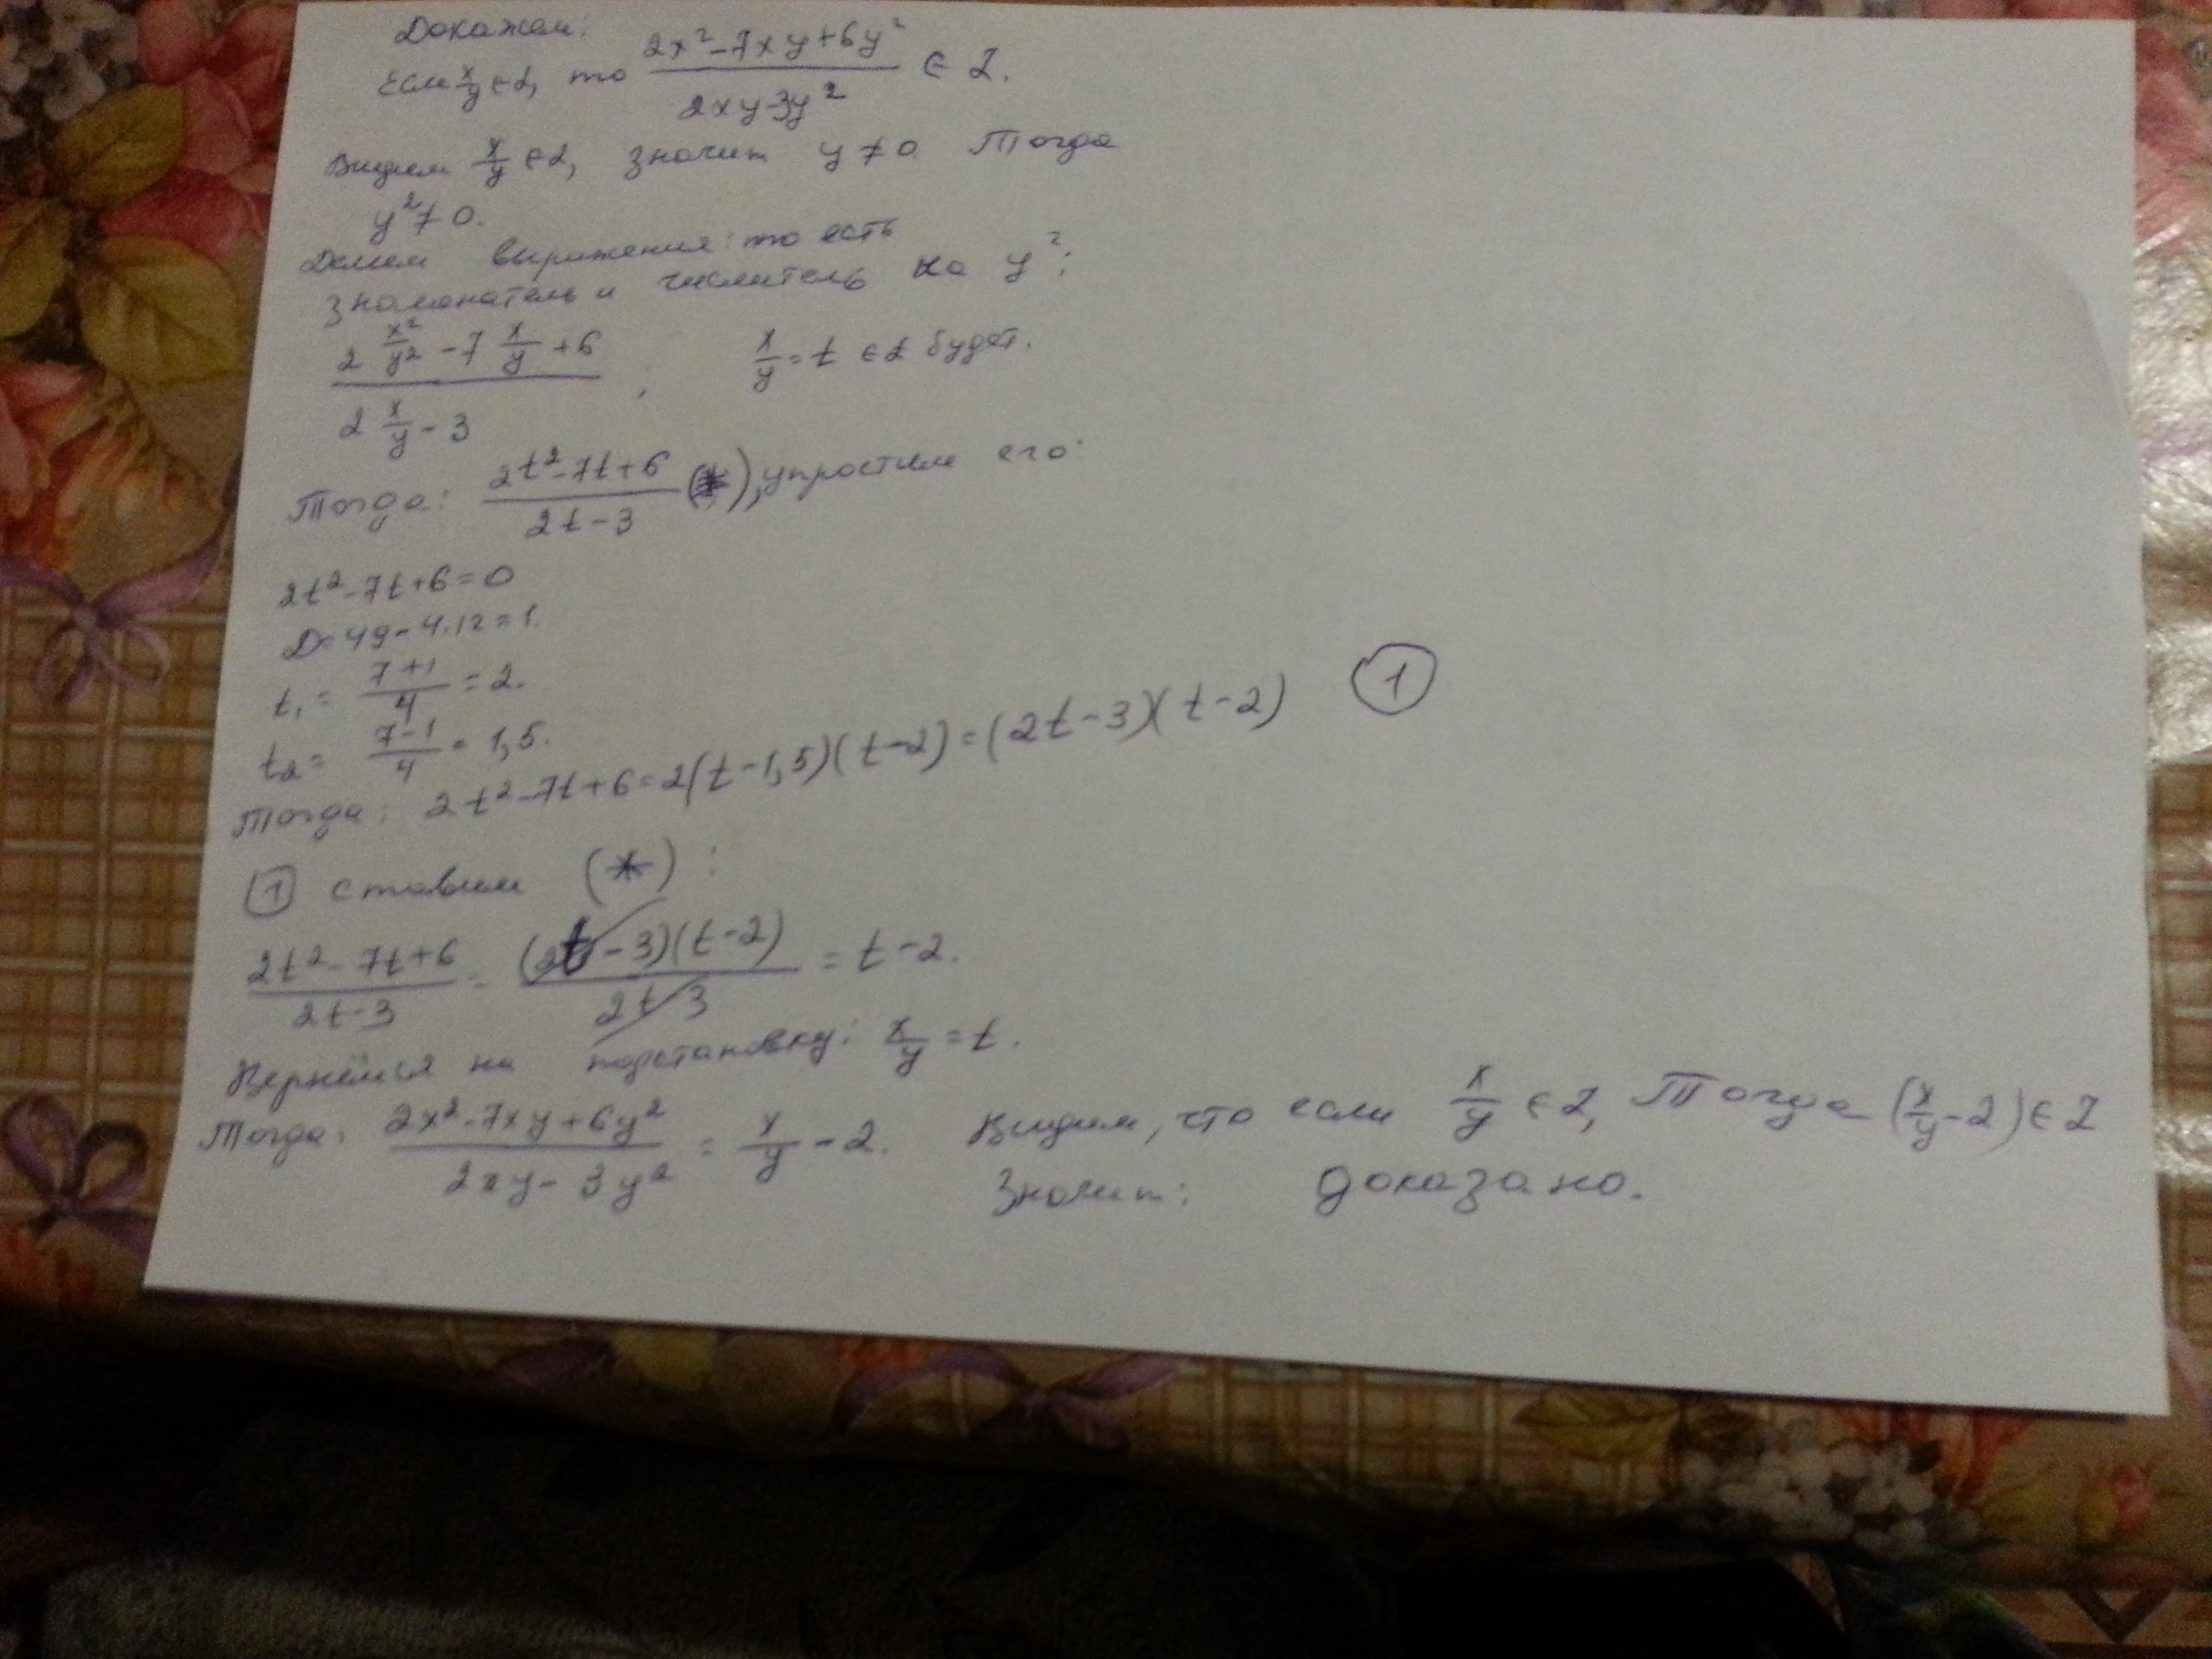 Докажем:
Если x/y ∈ Z, то (2x²-7xy+6y²)/(2xy-3y²) ∈ Z.
Видем x/y ∈ Z, значит y ≠ 0. Тогда
y² ≠ 0.
Делем выражения: то есть
знаменатель и числитель на y²:
(2 x²/y² - 7 x/y + 6)/(2 x/y - 3), x/y = t ∈ Z будет.
Тогда: (2t²-7t+6)/(2t-3) (*), упростим его:
2t²-7t+6=0
D=49-4·12=1.
t₁ = (7+1)/4 = 2.
t₂ = (7-1)/4 = 1,5.
Тогда: 2t²-7t+6=2(t-1,5)(t-2)=(2t-3)(t-2) ①
① ставим (*):
(2t²-7t+6)/(2t-3) = ((2t-3)(t-2))/(2t-3) = t-2.
Вернёмся на подстановку: x/y = t.
Тогда: (2x²-7xy+6y²)/(2xy-3y²) = x/y - 2. Видим, что если x/y ∈ Z, Тогда (x/y-2) ∈ Z
Значит: доказано.